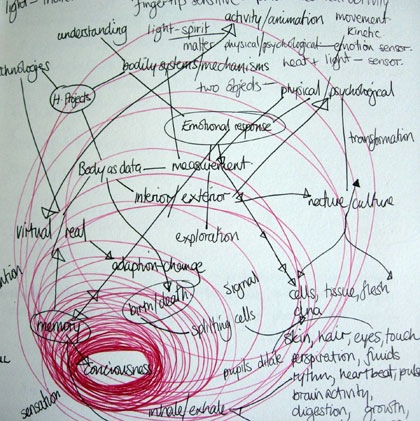 light - 
fingertip sensitive -
activity/animation movement
understanding light - spirit kinetic
matter physical/psychological - emotion sensor.
technologies bodily systems/mechanisms heat + light - sensor.
H. Projects two objects - physical/psychological
Emotional response
transformation
Body as data - measurement
interior/exterior nature/culture
virtual real exploration
adaption - change
birth/death signal cells, tissue, flesh
dna
memory splitting cells
skin, hair, eyes, touch
conciousness pupils dilate perspiration, fluids
rythm, heartbeat, pulse
sensation brain activity,
inhale/exhale digestion, growth,